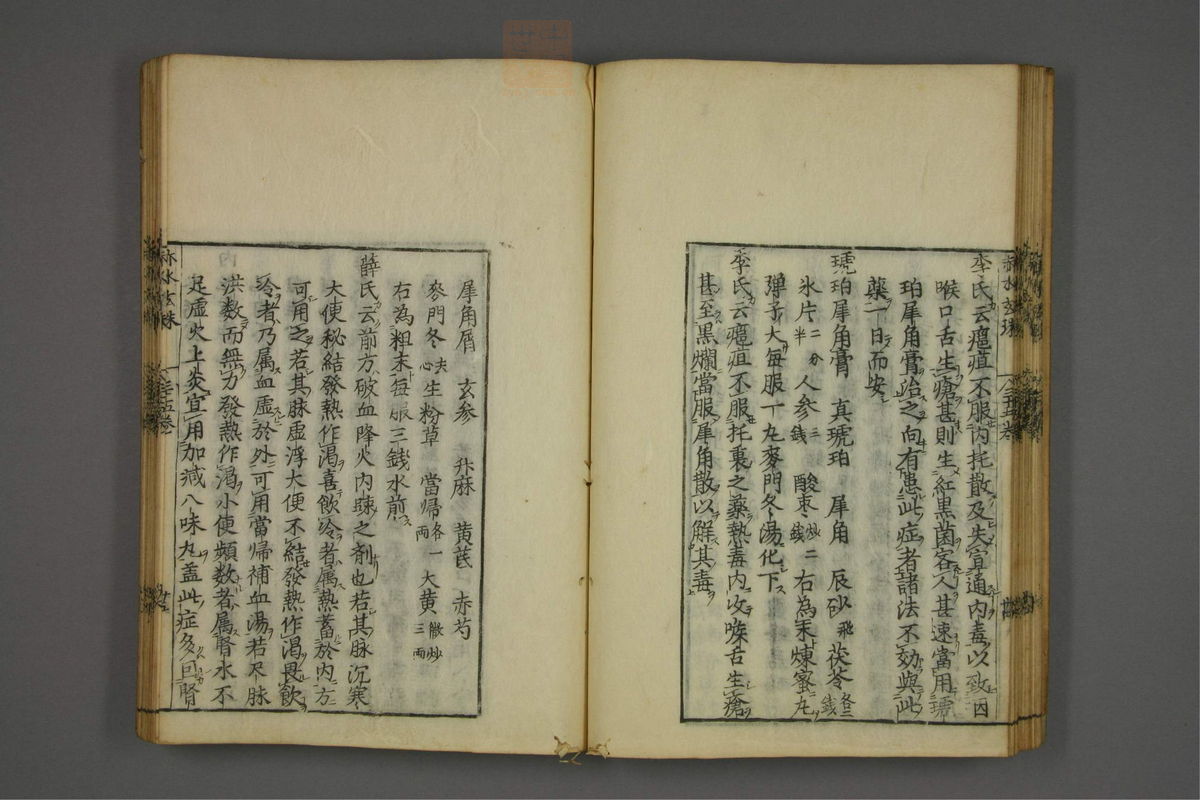 李氏云瘟疽不服內托散及失宣通內毒以致因
喉口舌生瘡甚則生紅黑菌客人甚速當用琥
珀犀角膏治之向有患此症者諸法不効與此
藥一日而安
琥珀犀角膏　真琥珀　犀角　辰砂飛　茯苓各二錢
氷片二分半　人參三錢　酸棗炒二錢　右為末煉蜜丸
彈子大每服一丸麥門冬湯化下
李氏云瘟疽不服托裏之藥熱毒內攻喉舌生瘡
甚至黑爛當服犀角散以解其毒
犀角屑　玄參　升麻　黃芪　赤芍
麥門冬去心　生粉草　當歸各一兩　大黃微炒三兩
右為粗末每服三錢水煎
薛氏云前方破血降火內疎之劑也若其脉沉寒
大便秘結發熱作渴喜飲冷者属熱蓄於內方
可用之若其脉虛浮大便不結發熱作渴畏飲
冷者乃属血虛於外可用當歸補血湯若尽脉
洪数而無力發熱作渴小便頻数者属腎水不
足虛火上炎宜用加減八味丸盖此症多因腎
赤水玄珠